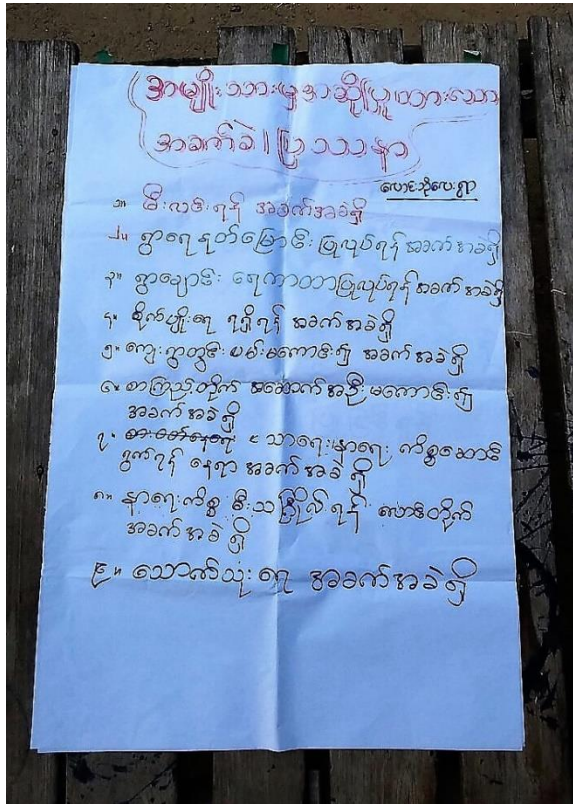 အမျိုးသားမှအဆိုပြုထားသော
အခက်ခဲ၊ ပြဿနာ
လောင်းဘိုလေးရွာ
၁။ မီးလင်းရန် အခက်အခဲရှိ
၂။ ရွာရေနုတ်မြောင်း ပြုလုပ်ရန် အခက်အခဲရှိ
၃။ ရွာချောင်း ရေကာတာပြုလုပ်ရန် အခက်အခဲရှိ
၄။ စိုက်ပျိုးရေ ရရှိရန် အခက်အခဲရှိ
၅။ ကျေးရွာတွင်း လမ်းမကောင်း၍ အခက်အခဲရှိ
၆။ စာကြည့်တိုက် အဆောက်အဦ မကောင်း၍
အခက်အခဲရှိ
၇။ သာရေးနာရေး ကိစ္စဆောင်
ရွက်ရန် နေရာ အခက်အခဲရှိ
၈။ နာရေးကိစ္စ မီးသင်္ဂြိုလ်ရန်
အခက်အခဲရှိ
၉။ သောက်သုံးရေ အခက်အခဲရှိ